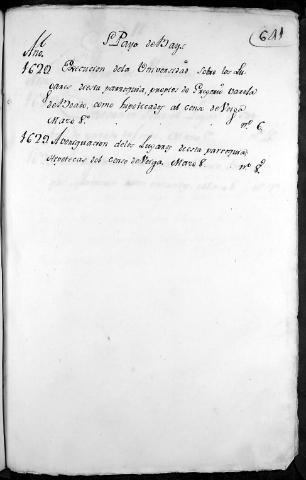 641
Sn. Payo de Bays
Año
1620 Execucion dela Universidad sobre los Lu-
gares desta parroquia, propios de Gregorio Varela
de Deado, como hipotecados al censo de Veiga
Mazo 8º nº 6
1629 Averiguacion delos Lugares de esta parroquia
Hipotecas del censo de Veiga. Mazo 8º nº 8º